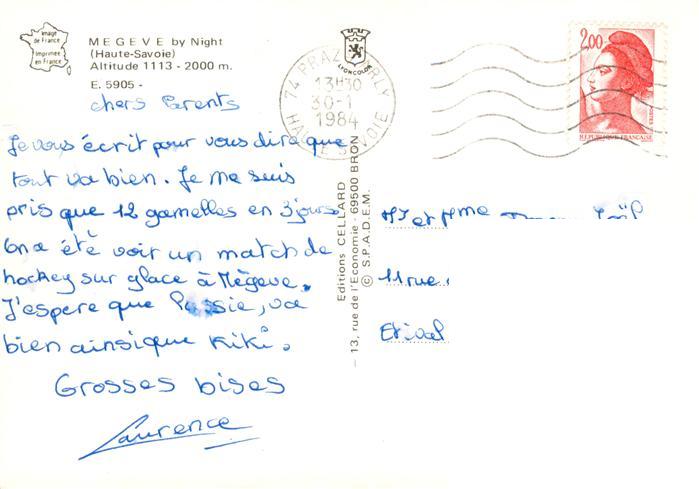 Image
de France
Imprimée
en France
MEGEVE by Night
(Haute-Savoie)
Altitude 1113 - 2000 m.
E. 5905 -
LYONCOLOR
74 PRAZ ARLY
13H30
30-1
1984
HAUTE SAVOIE
2,00
REPUBLIQUE FRANÇAISE
POSTES
chers Parents
Je vous écrit pour vous dire que
tout va bien. Je me suis
pris que 12 gamelles en 3 jours
On a été voir un match de
hockey sur glace à Mègeve.
J'espere que Pussie, va
bien ainsi que Kiki.
Grosses bises
Laurence
Editions CELLARD
- 13, rue de l'Economie - 69500 BRON
© S.P.A.D.E.M.
Mr et Mme
11 rue
Etival